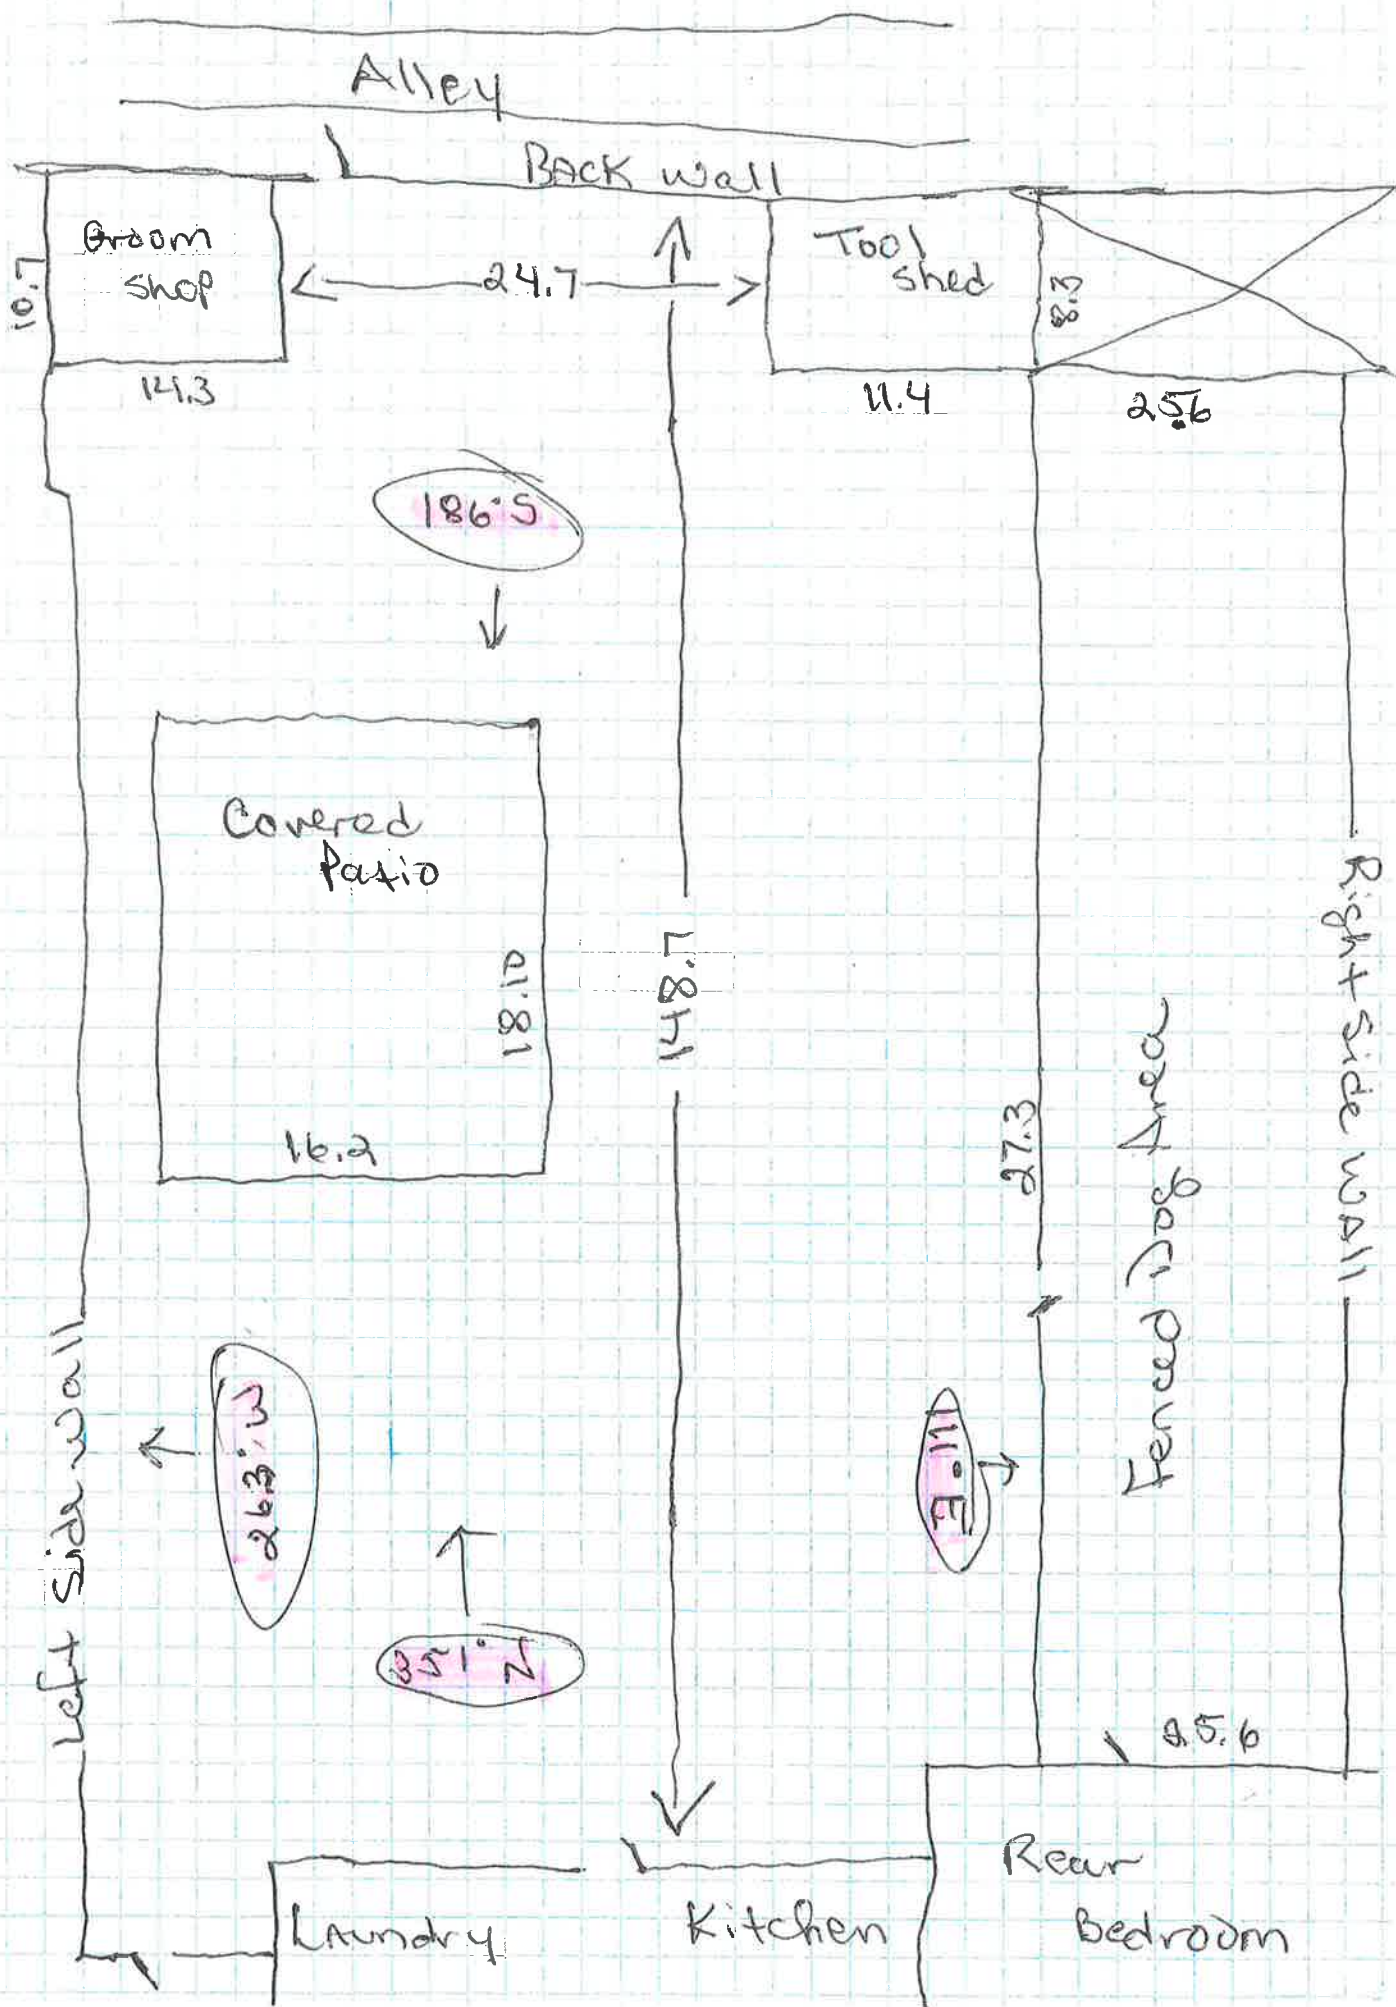 Alley
BACK wall
Groom
shop
10.7
14.3
24.7
Tool
shed
8.3
11.4
25.6
186°S
Covered
Patio
18.10
16.2
148.7
27.3
Fenced Dog Area
Right Side WAll
Left Side wall
263° W
351° N
111° E
25.6
LAundry
Kitchen
Rear
Bedroom